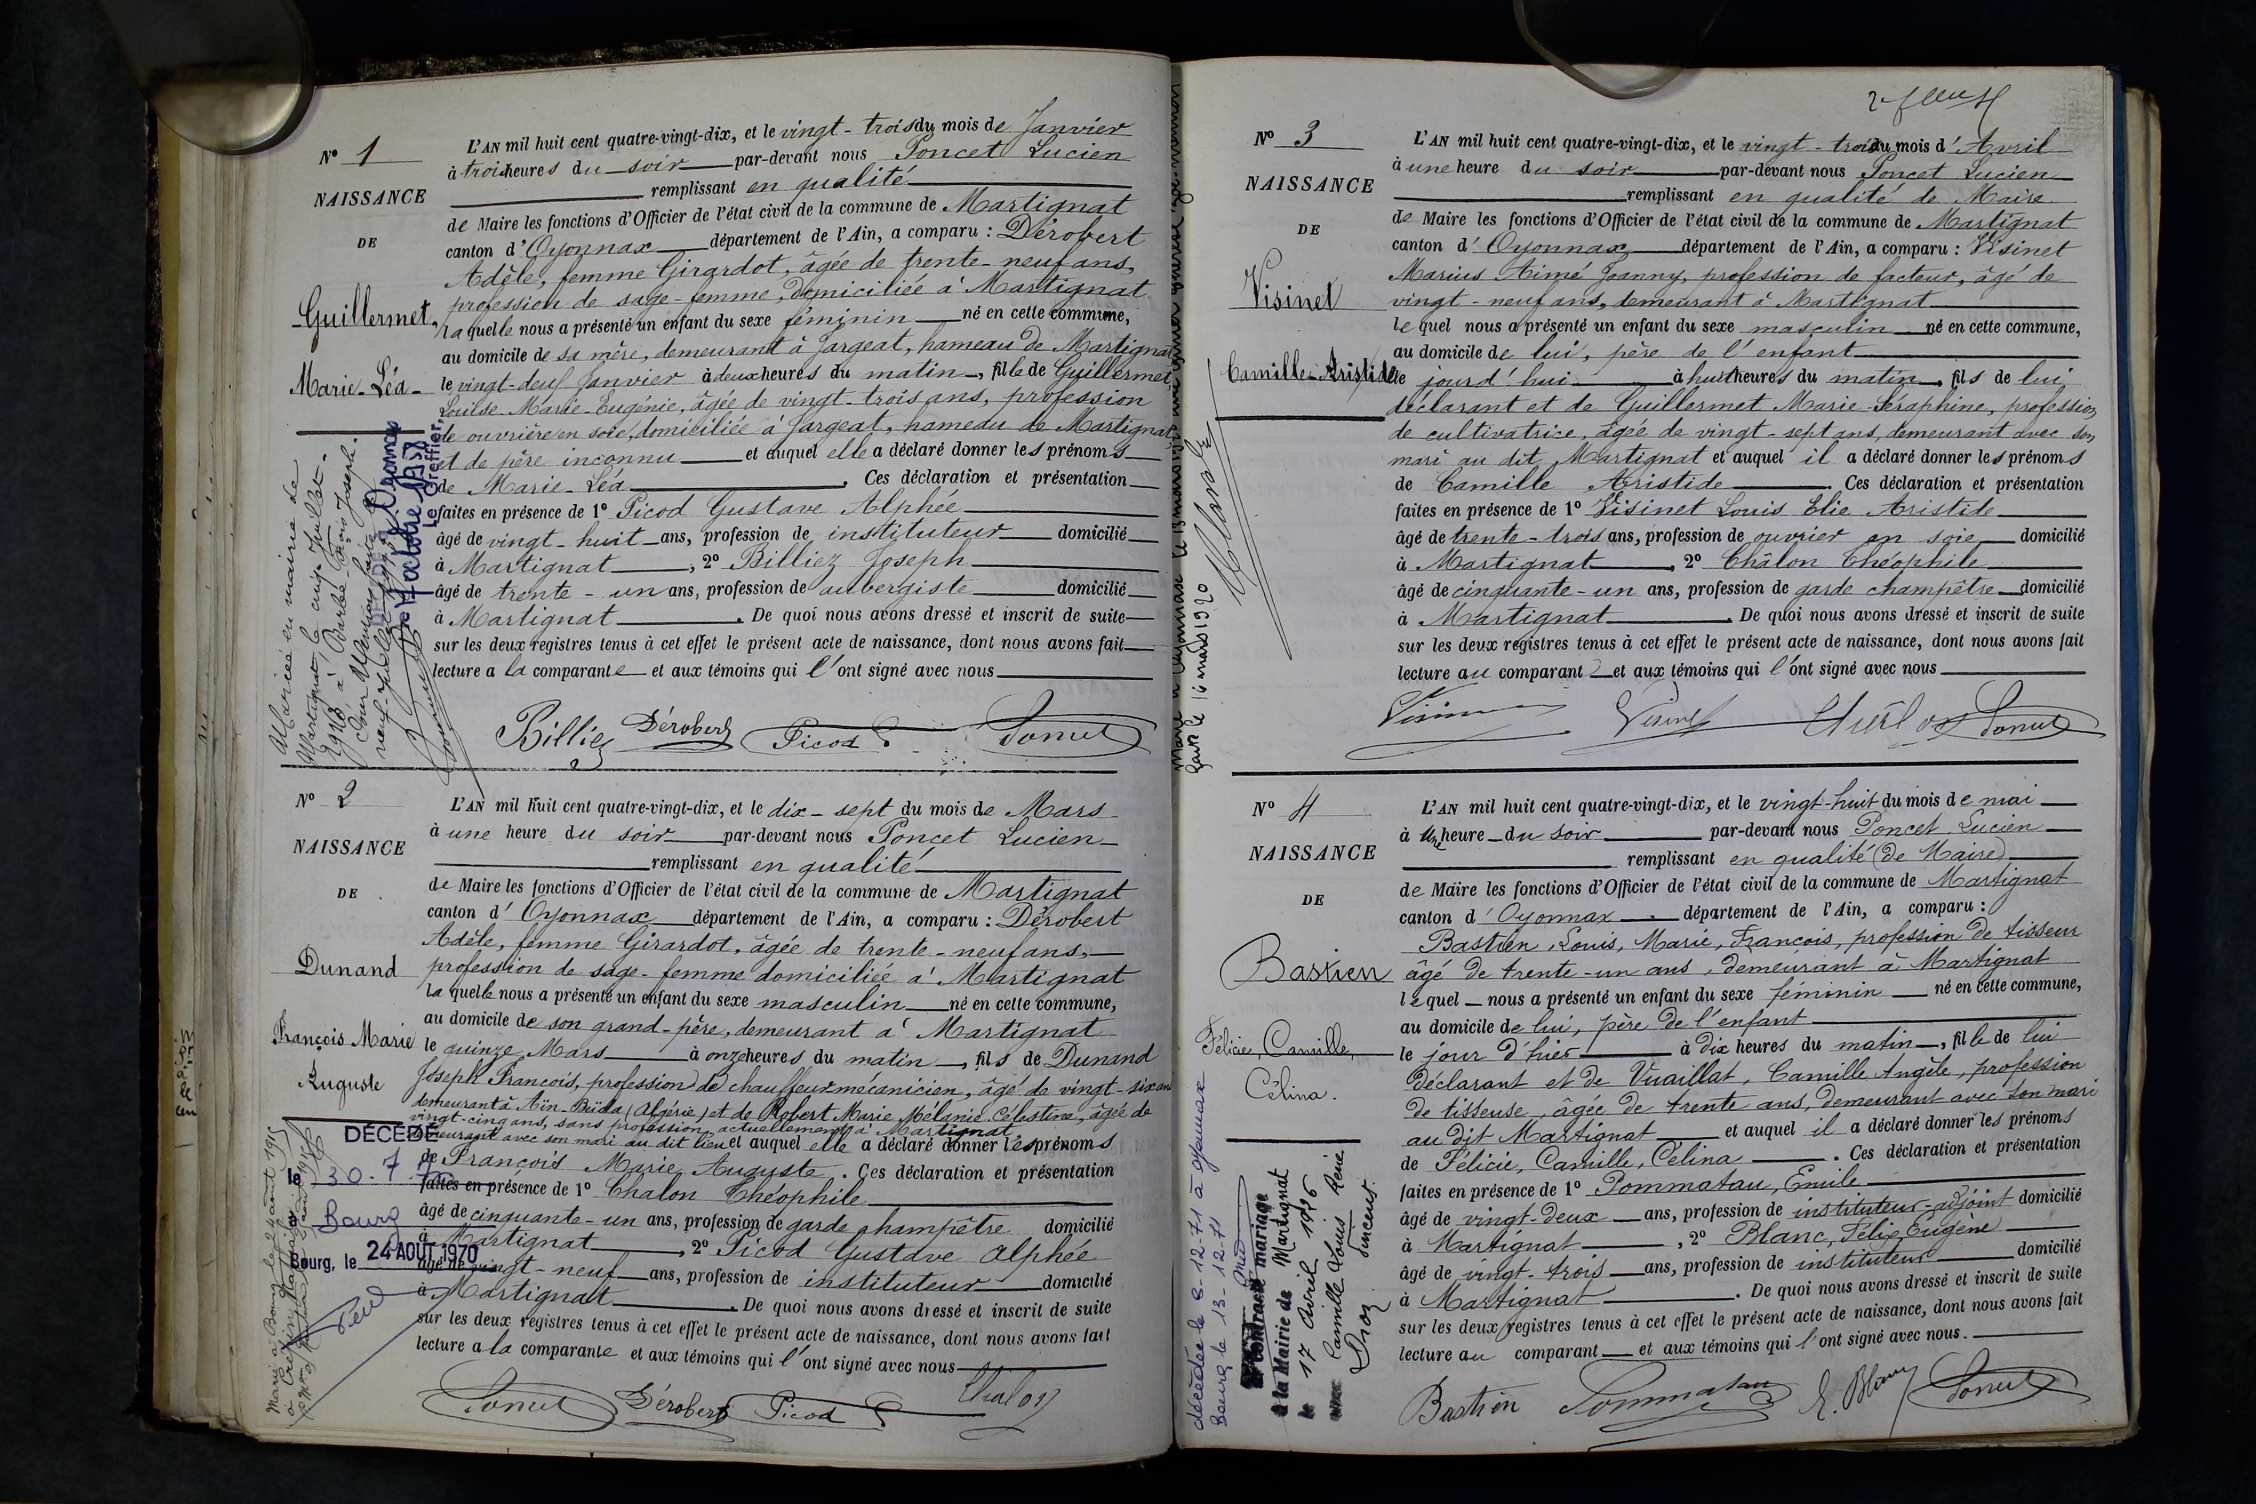 Nº 1
NAISSANCE
DE
Guillermet,
Marie-Léa
L'AN mil huit cent quatre-vingt-dix, et le vingt-trois du mois de Janvier
à trois heures du soir par-devant nous Poncet Lucien
remplissant en qualité
de Maire les fonctions d'Officier de l'état civil de la commune de Martignat
canton d'Oyonnax département de l'Ain, a comparu : Dérobert
Adèle, femme Girardot, âgée de trente-neuf ans,
profession de sage-femme, domiciliée à Martignat
laquelle nous a présenté un enfant du sexe féminin né en cette commune,
au domicile de sa mère, demeurant à Jargeat, hameau de Martignat
le vingt-deux Janvier à deux heures du matin, fille de Guillermet
Louise Marie-Eugénie, âgée de vingt-trois ans, profession
de ouvrière en soie, domiciliée à Jargeat, hameau de Martignat
et de père inconnu et auquel elle a déclaré donner les prénoms
de Marie-Léa. Ces déclaration et présentation
faites en présence de 1º Picod Gustave Alphée
âgé de vingt-huit ans, profession de instituteur domicilié
à Martignat, 2º Billiez Joseph
âgé de trente-un ans, profession de aubergiste domicilié
à Martignat. De quoi nous avons dressé et inscrit de suite
sur les deux registres tenus à cet effet le présent acte de naissance, dont nous avons fait
lecture a la comparante et aux témoins qui l'ont signé avec nous
Billiez Dérobert Picod Poncet
Mariée en mairie de
Martignat, le cinq Juillet
1918 à Barbe François Joseph.
Le Greffier,
Nº 2
NAISSANCE
DE
Dunand
François Marie
Auguste
L'AN mil huit cent quatre-vingt-dix, et le dix-sept du mois de Mars
à une heure du soir par-devant nous Poncet Lucien
remplissant en qualité
de Maire les fonctions d'Officier de l'état civil de la commune de Martignat
canton d'Oyonnax département de l'Ain, a comparu : Dérobert
Adèle, femme Girardot, âgée de trente-neuf ans,
profession de sage-femme domiciliée à Martignat
laquelle nous a présenté un enfant du sexe masculin né en cette commune,
au domicile de son grand-père, demeurant à Martignat
le quinze Mars à onze heures du matin, fils de Dunand
Joseph François, profession de chauffeur mécanicien, âgé de vingt-six ans
demeurant à Aïn-Beïda (Algérie) et de Robert Marie Mélanie Célestine, âgée de
vingt-cinq ans, sans profession, actuellement à Martignat
demeurant avec son mari au dit lieu et auquel elle a déclaré donner les prénoms
de François Marie Auguste. Ces déclaration et présentation
faites en présence de 1º Chalon Théophile
âgé de cinquante-un ans, profession de garde champêtre domicilié
à Martignat, 2º Picod Gustave Alphée
âgé de vingt-neuf ans, profession de instituteur domicilié
à Martignat. De quoi nous avons dressé et inscrit de suite
sur les deux registres tenus à cet effet le présent acte de naissance, dont nous avons fait
lecture a la comparante et aux témoins qui l'ont signé avec nous
Poncet Dérobert Picod Chalon
DÉCÉDÉ
le 30.7.
à Bourg
Bourg, le 24 AOUT 1970
2e feuillet
Nº 3
NAISSANCE
DE
Visinet
Camille-Aristide
L'AN mil huit cent quatre-vingt-dix, et le vingt-trois du mois d'Avril
à une heure du soir par-devant nous Poncet Lucien
remplissant en qualité de Maire
de Maire les fonctions d'Officier de l'état civil de la commune de Martignat
canton d'Oyonnax département de l'Ain, a comparu : Visinet
Marius Aimé Joanny, profession de facteur, âgé de
vingt-neuf ans, demeurant à Martignat
lequel nous a présenté un enfant du sexe masculin né en cette commune,
au domicile de lui, père de l'enfant
le jourd'hui à huit heures du matin, fils de lui
déclarant et de Guillermet Marie-Séraphine, profession
de cultivatrice, âgée de vingt-sept ans, demeurant avec son
mari au dit Martignat et auquel il a déclaré donner les prénoms
de Camille Aristide. Ces déclaration et présentation
faites en présence de 1º Visinet Louis Elie Aristide
âgé de trente-trois ans, profession de ouvrier en soie domicilié
à Martignat, 2º Châlon Théophile
âgé de cinquante-un ans, profession de garde champêtre domicilié
à Martignat. De quoi nous avons dressé et inscrit de suite
sur les deux registres tenus à cet effet le présent acte de naissance, dont nous avons fait
lecture au comparant et aux témoins qui l'ont signé avec nous
Visinet Visinet Chalon Poncet
Nº 4
NAISSANCE
DE
Bastien
Félicie, Camille,
Célina.
L'AN mil huit cent quatre-vingt-dix, et le vingt-huit du mois de mai
à une heure du soir par-devant nous Poncet Lucien
remplissant en qualité (de Maire)
de Maire les fonctions d'Officier de l'état civil de la commune de Martignat
canton d'Oyonnax département de l'Ain, a comparu :
Bastien, Louis, Marie, François, profession de tisseur
âgé de trente-un ans, demeurant à Martignat
lequel nous a présenté un enfant du sexe féminin né en cette commune,
au domicile de lui, père de l'enfant
le jour d'hier à dix heures du matin, fille de lui
déclarant et de Vuaillat, Camille Angèle, profession
de tisseuse, âgée de trente ans, demeurant avec son mari
au dit Martignat et auquel il a déclaré donner les prénoms
de Félicie, Camille, Célina. Ces déclaration et présentation
faites en présence de 1º Pommatau, Emile
âgé de vingt-deux ans, profession de instituteur-adjoint domicilié
à Martignat, 2º Blanc, Félix Eugène
âgé de vingt-trois ans, profession de instituteur domicilié
à Martignat. De quoi nous avons dressé et inscrit de suite
sur les deux registres tenus à cet effet le présent acte de naissance, dont nous avons fait
lecture au comparant et aux témoins qui l'ont signé avec nous.
Bastien Pommatau E. Blanc Poncet
décédée le 8-12-71 à Oyonnax
Bourg le 13-12-71
mariage
à la Mairie de Martignat
le 17 Avril 1926
avec Camille Louis René